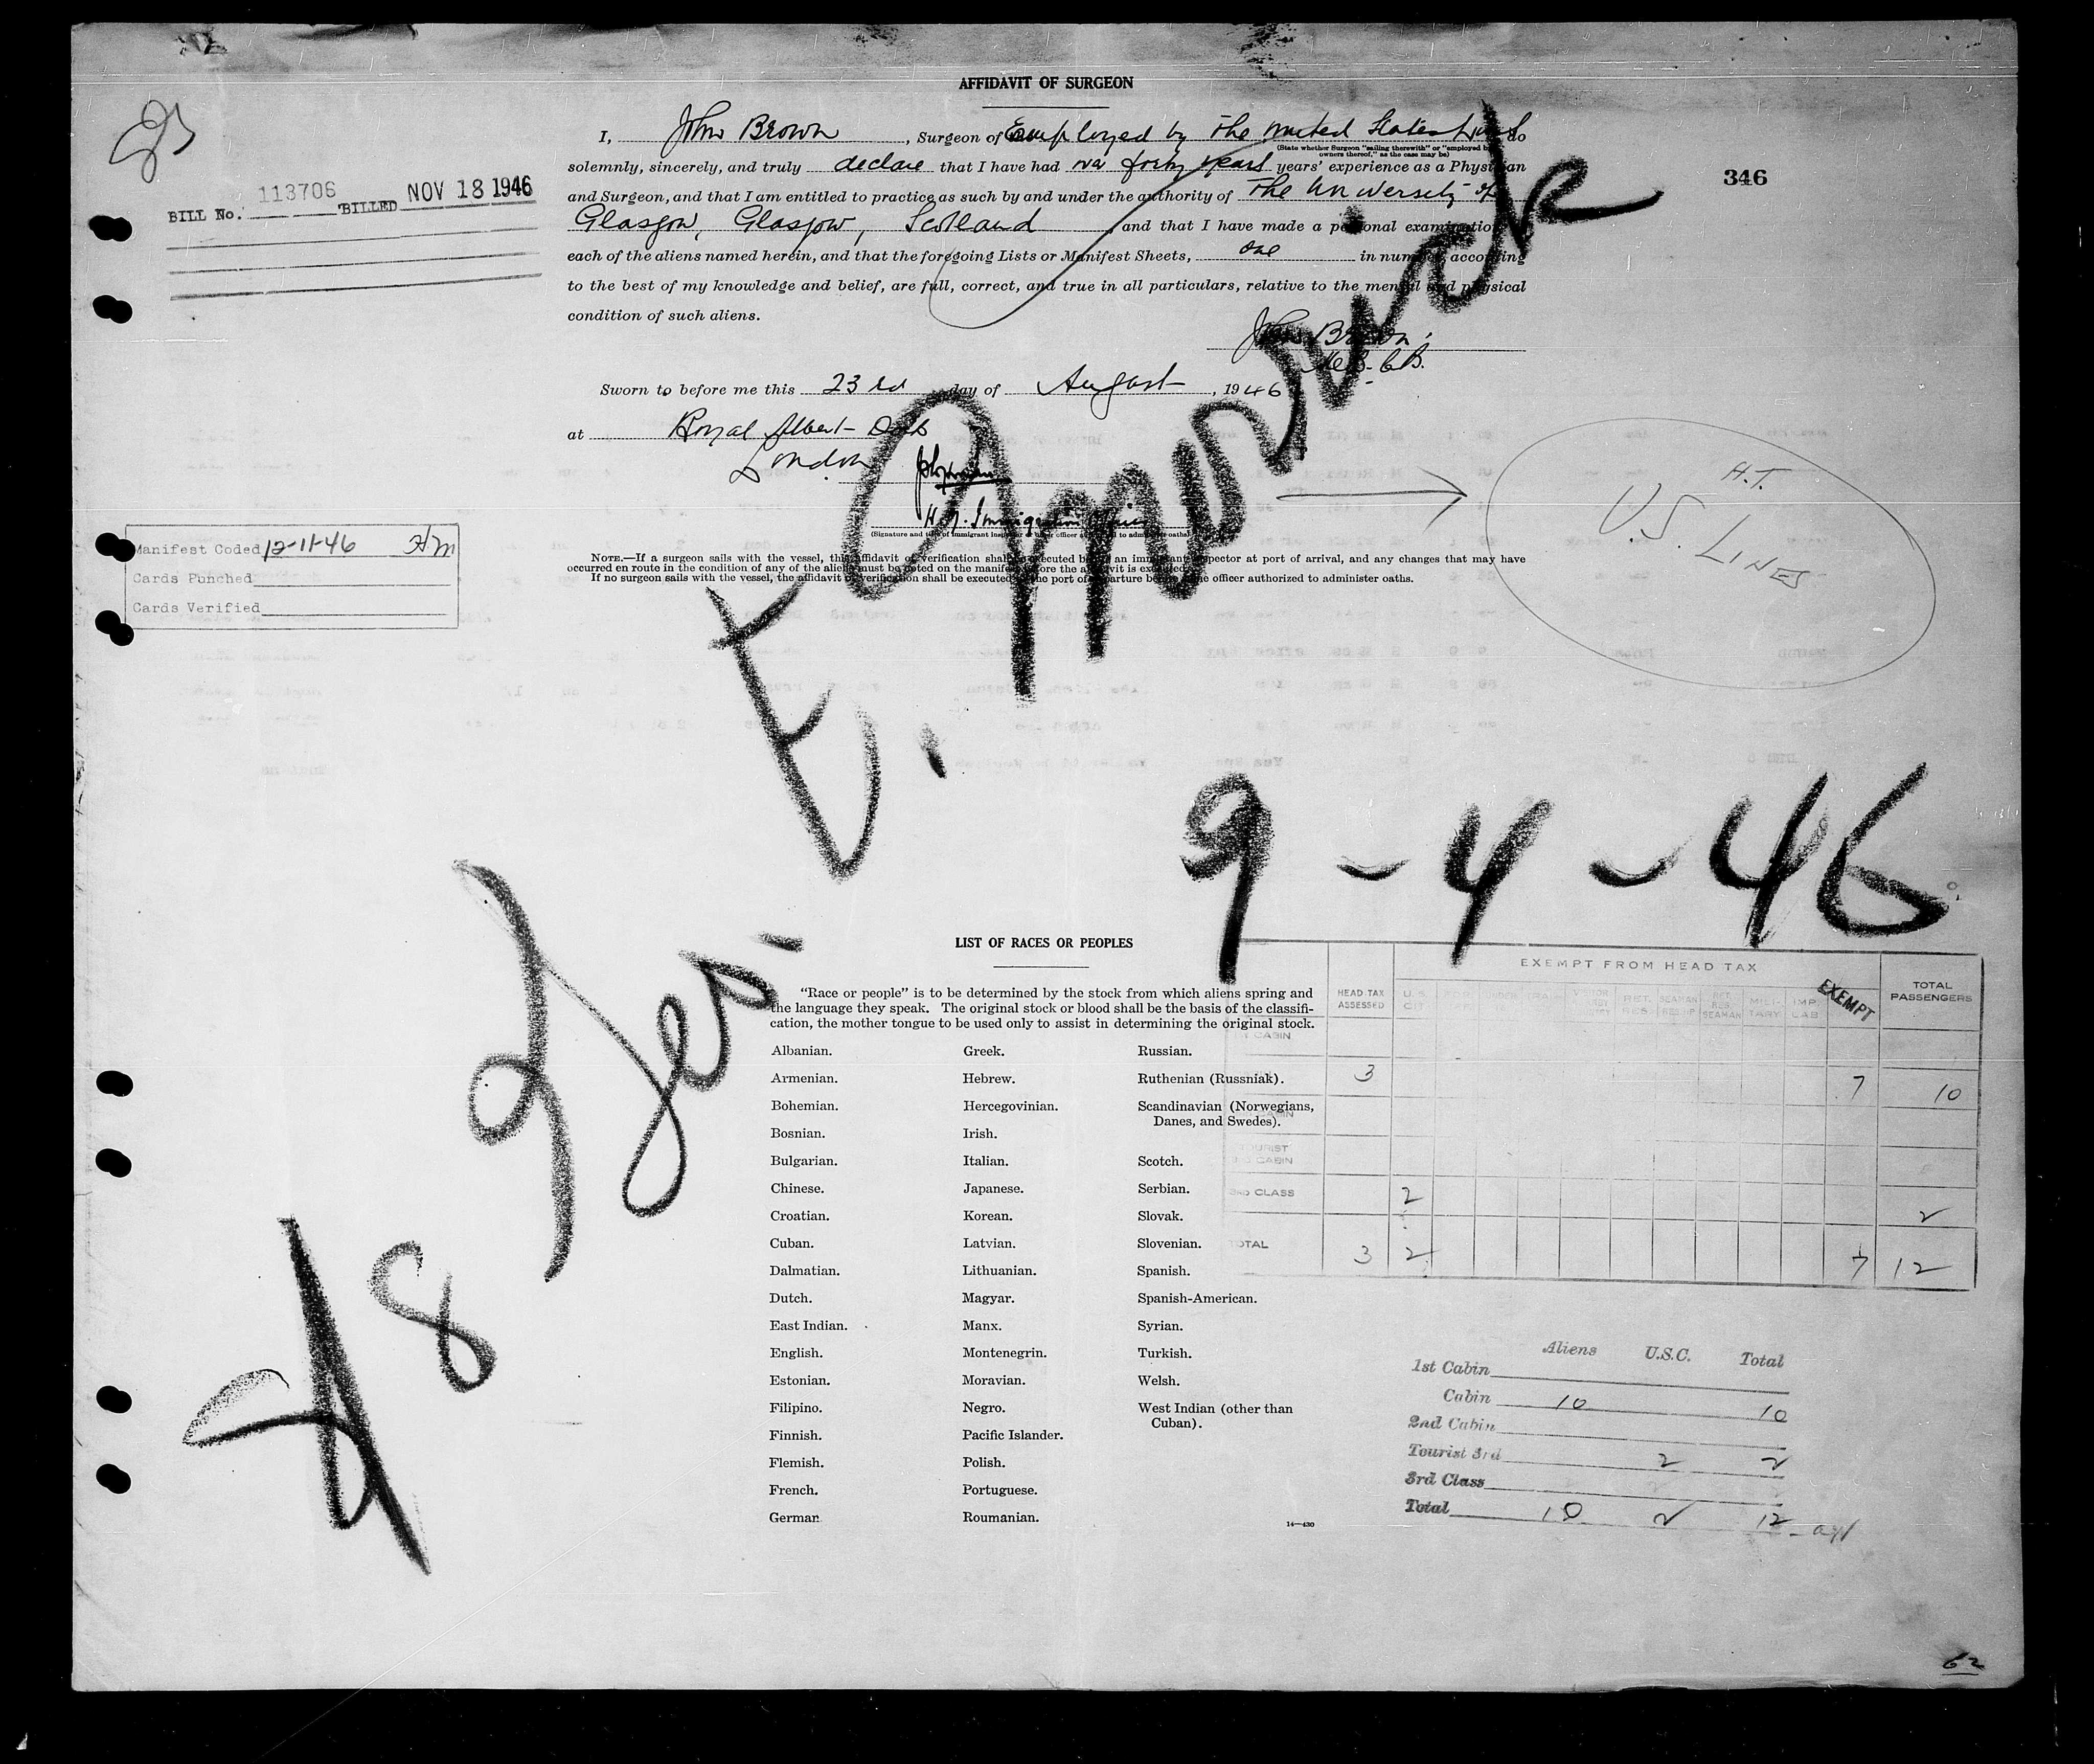 AFFIDAVIT OF SURGEON
I, John Brown, Surgeon of Employed by The United States Lines do
(State whether Surgeon "sailing therewith" or "employed by
owners thereof," as the case may be)
solemnly, sincerely, and truly declare that I have had over forty years years' experience as a Physician
and Surgeon, and that I am entitled to practice as such by and under the authority of The University of
Glasgow, Glasgow, Scotland and that I have made a personal examination
each of the aliens named herein, and that the foregoing Lists or Manifest Sheets, one in number, according
to the best of my knowledge and belief, are full, correct, and true in all particulars, relative to the mental and physical
condition of such aliens.
346
BILL No. 113706 BILLED NOV 18 1946
John Brown
M.B. Ch.B.
Sworn to before me this 23rd day of August, 1946
at Royal Albert Dock
London
H.M. Immigration Officer
(Signature and title of immigrant inspector or other officer authorized to administer oaths)
NOTE.—If a surgeon sails with the vessel, this affidavit of verification shall be executed before an immigrant inspector at port of arrival, and any changes that may have
occurred en route in the condition of any of the aliens must be noted on the manifest before the affidavit is executed.
If no surgeon sails with the vessel, the affidavit of verification shall be executed at the port of departure before the officer authorized to administer oaths.
H.T.
U.S. LINES
Manifest Coded 12-11-46
Cards Punched
Cards Verified
9-4-46
LIST OF RACES OR PEOPLES
"Race or people" is to be determined by the stock from which aliens spring and
the language they speak. The original stock or blood shall be the basis of the classifi-
cation, the mother tongue to be used only to assist in determining the original stock.
Albanian. Greek. Russian.
Armenian. Hebrew. Ruthenian (Russniak).
Bohemian. Hercegovinian. Scandinavian (Norwegians,
Danes, and Swedes).
Bosnian. Irish.
Bulgarian. Italian. Scotch.
Chinese. Japanese. Serbian.
Croatian. Korean. Slovak.
Cuban. Latvian. Slovenian.
Dalmatian. Lithuanian. Spanish.
Dutch. Magyar. Spanish-American.
East Indian. Manx. Syrian.
English. Montenegrin. Turkish.
Estonian. Moravian. Welsh.
Filipino. Negro. West Indian (other than
Cuban).
Finnish. Pacific Islander.
Flemish. Polish.
French. Portuguese.
German Roumanian.
14—430
EXEMPT FROM HEAD TAX
HEAD TAX ASSESSED U.S. CIT RET. RES. SEAMAN MILITARY IMP LAB EXEMPT TOTAL PASSENGERS
CABIN
3 7 10
TOURIST
3RD CABIN
3RD CLASS 2 2
TOTAL 3 2 7 12
Aliens U.S.C. Total
1st Cabin
Cabin 10 10
2nd Cabin
Tourist 3rd 2 2
3rd Class
Total 10 2 12
62